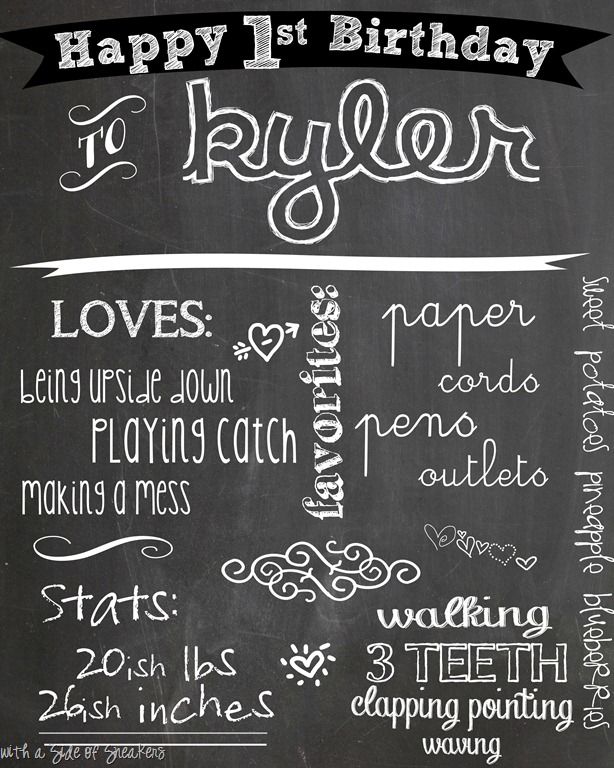 Happy 1st Birthday
TO kyler
LOVES:
being upside down
Playing catch
making a mess
favorites:
paper
cords
pens
outlets
sweet potatoes pineapple blueberries
Stats:
20ish lbs
26ish inches
walking
3 TEETH
clapping pointing
waving
with a Side of Sneakers